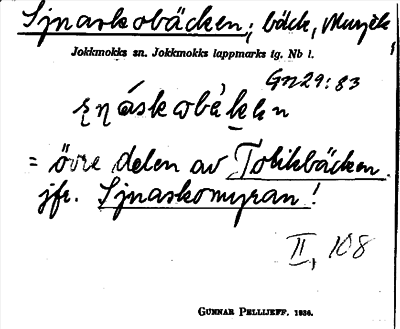 Sjnaskobäcken; bäck, Murjek,
Jokkmokks sn. Jokkmokks lappmarks tg. Nb l.
GN29:83
= övre delen av Tolikbäcken.
jfr. Sjnaskomyran!
II, 108
GUNNAR PELLIJEFF. 1936.